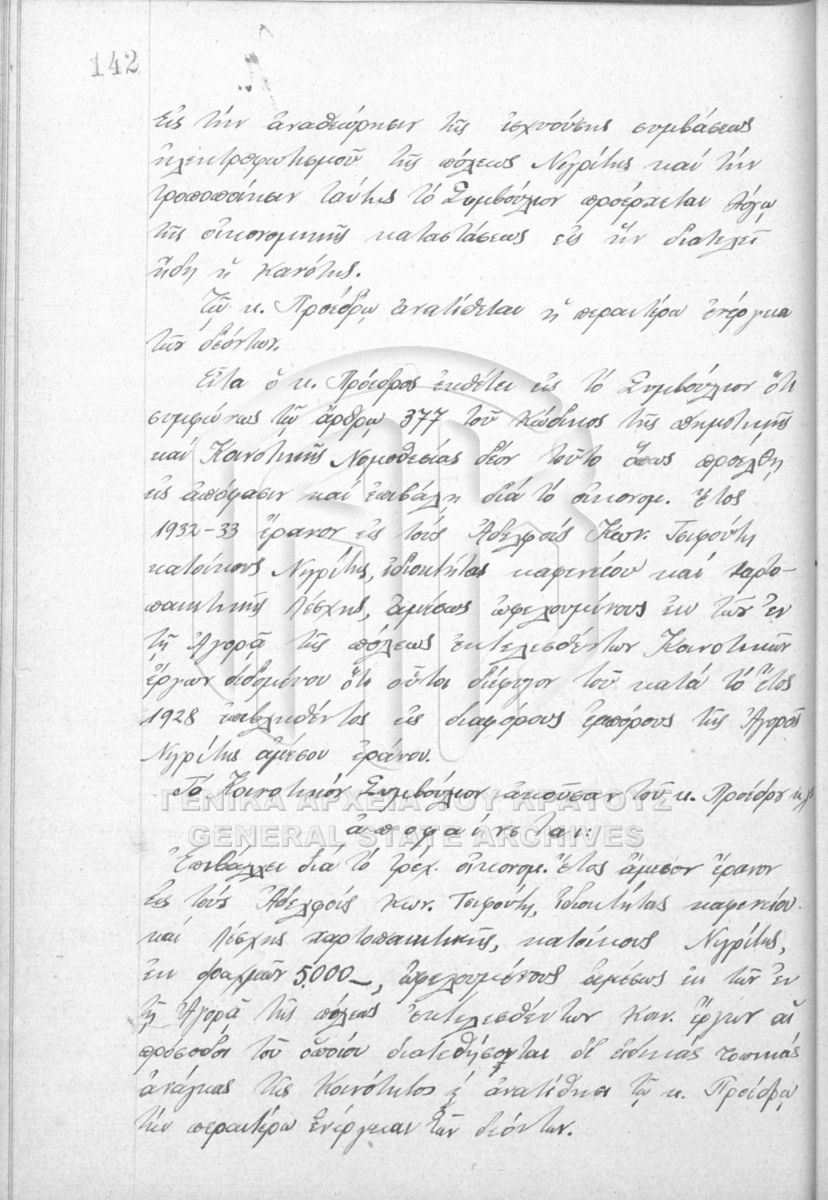 142
Εἰς τὴν ἀναθεώρησιν τῆς ἰσχυούσης συμβάσεως
ἠλεκτροφωτισμοῦ τῆς πόλεως Νιγρίτης καὶ τὴν
τροποποίησιν ταύτης τὸ Συμβούλιον προέρχεται λόγῳ
τῆς οἰκονομικῆς καταστάσεως εἰς ἣν διατελεῖ
ἤδη ἡ Κοινότης.
Τῷ κ. Προέδρῳ ἀνατίθεται ἡ περαιτέρω ἐνέργεια
τῶν δεόντων.
Εἶτα ὁ κ. Πρόεδρος ἐκθέτει εἰς τὸ Συμβούλιον ὅτι
συμφώνως τῷ ἄρθρῳ 377 τοῦ Κώδικος τῆς Δημοτικῆς
καὶ Κοινοτικῆς Νομοθεσίας δέον τοῦτο ὅπως προέλθῃ
εἰς ἀπόφασιν καὶ ἐπιβάλῃ διὰ τὸ οἰκονομ. ἔτος
1932-33 ἔρανον εἰς τοὺς Ἀδελφοὺς Κων. Τσιφούτη
κατοίκους Νιγρίτης, ἰδιοκτήτας καφενείου καὶ χαρτο-
παικτικῆς λέσχης, ἀμέσως ὠφελουμένους ἐκ τῶν ἐν
τῇ Ἀγορᾷ τῆς πόλεως ἐκτελεσθέντων Κοινοτικῶν
ἔργων δεδομένου ὅτι οὗτοι διέφυγον τοῦ κατὰ τὸ ἔτος
1928 ἐπιβληθέντος εἰς διαφόρους ἐμπόρους τῆς Ἀγορᾶς
Νιγρίτης ἀμέσου ἐράνου.
Τὸ Κοινοτικὸν Συμβούλιον ἀκοῦσαν τοῦ κ. Προέδρου κλπ
ἀποφαίνεται:
Ἐπιβάλλει διὰ τὸ τρέχ. οἰκονομ. ἔτος ἄμεσον ἔρανον
εἰς τοὺς Ἀδελφοὺς Κων. Τσιφούτη, ἰδιοκτήτας καφενείου
καὶ λέσχης χαρτοπαικτικῆς, κατοίκους Νιγρίτης,
ἐκ δραχμῶν 5.000_, ὠφελουμένους ἀμέσως ἐκ τῶν ἐν
τῇ Ἀγορᾷ τῆς πόλεως ἐκτελεσθέντων Κοιν. ἔργων αἱ
πρόσοδοι τοῦ ὁποίου διατεθήσονται δι' εἰδικὰς τοπικὰς
ἀνάγκας τῆς Κοινότητος & ἀνατίθησι τῷ κ. Προέδρῳ
τὴν περαιτέρω ἐνέργειαν τῶν δεόντων.
ΓΕΝΙΚΑ ΑΡΧΕΙΑ ΤΟΥ ΚΡΑΤΟΥΣ
GENERAL STATE ARCHIVES